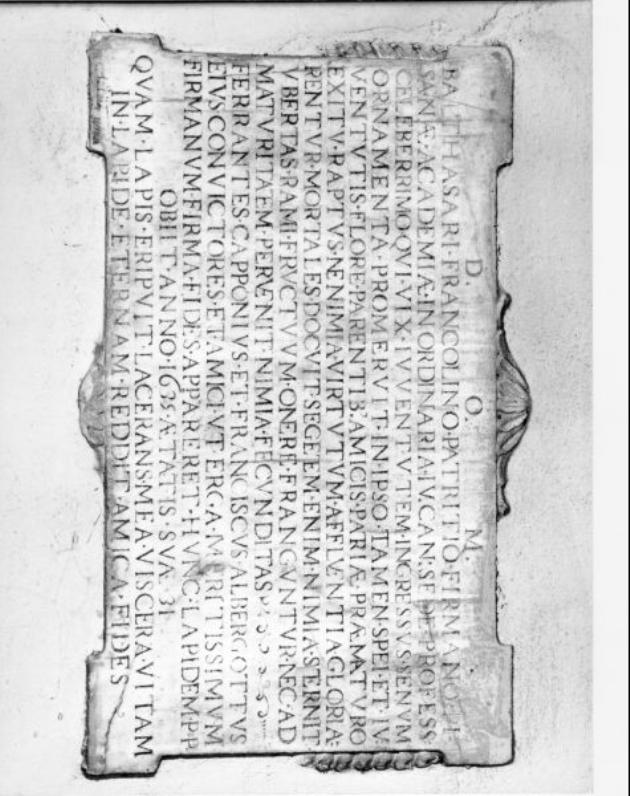 D. O. M.
BALTHASARI·FRANCOLINO·PATRITIO·FIRMANO·PI
SANÆ·ACADEMIÆ·IN·ORDINARIA·IV·CAN·SEDE·PROFESS·
CELEBERRIMO·QVI·VIX·IVVENTVTEM·INGRESSVS·SENVM
ORNAMENTA·PROMERVIT·IN·IPSO·TAMEN·SPEI·ET·IV·
VENTVTIS·FLORE·PARENTIB'·AMICIS·PARIÆ·PRÆMATVRO
EXITV·RAPTVS·NE·NIMIA·VIRTVTVM·AFFLVENTIA·GLORIA·
RENTVR·MORTALES·DOCVIT·SEGETEM·ENIM·NIMIA·STERNIT
VBERTAS·RAMI·FRVCTVVM·ONERE·FRANGVNTVR·NEC·AD
MATVRITAEM·PERVENIT·NIMIA·FECVNDITAS
FERRANTES·CAPPONIVS·ET·FRANCISCVS·ALBERGOTTVS
EIVS·CONVICTORES·ET·AMICI·VT·ERGA·MERITISSIMVM
FIRMANVM·FIRMA·FIDES·APPARERET·HVNC·LAPIDEM·P·P·
OBIIT·ANNO·1635·ÆTATIS·SVÆ·31
QVAM·LAPIS·ERIPVIT·LACERANS·MEA·VISCERA·VITAM
IN·LAPIDE·ETERNAM·REDDIT·AMICA·FIDES